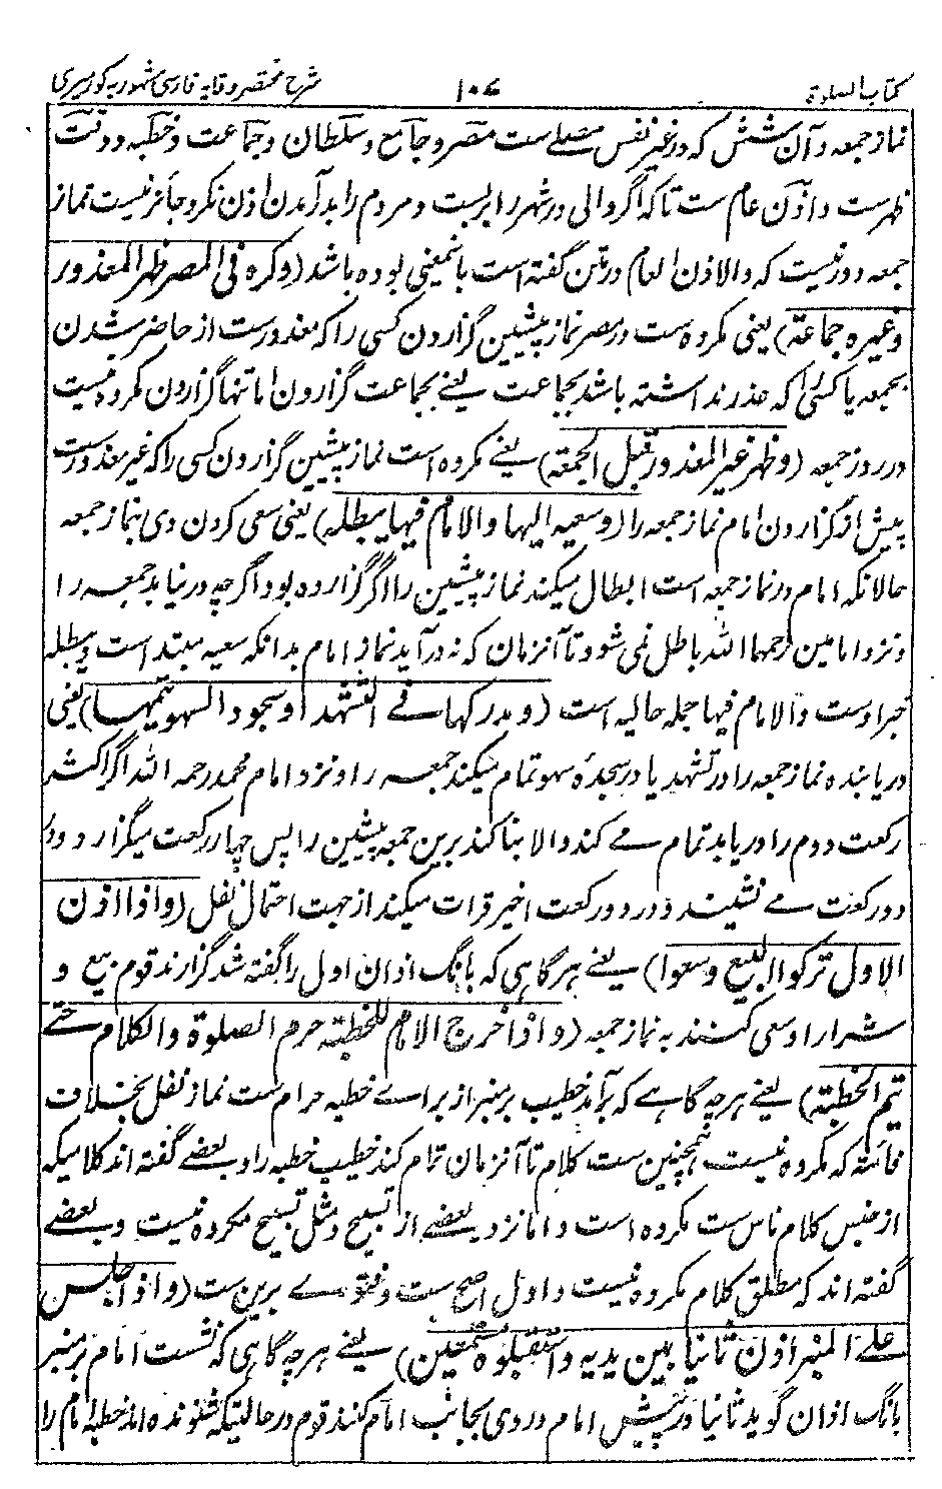 کتاب الصلوة ۱۰۷ شرح مختصر وقایه فارسی مشهور به کور میری
نماز جمعه و آن شش که در غیر نفس مصلے ست مصر و جامع و سلطان و جماعت و خطبه و وقت
ظهرست و اذن عام ست تا که اگر والی در شهر را بربست و مردم را بدر آمدن اذن نکرد جائز نیست نماز
جمعه و دور نیست که والاذن العام در متن گفته است باینمعنی بوده باشد (وکره فی المصر ظهر المعذور
وغیره جماعة) یعنی مکروه ست در مصر نماز پیشین گزاردن کسی را که معذورست از حاضر شدن
بجمعه یا کسی را که عذر نداشته باشد بجماعت یعنے بجماعت گزاردن اما تنها گزاردن مکروه نیست
در روز جمعه (وظهر غیر المعذور قبل الجمعة) یعنے مکروه است نماز پیشین گزاردن کسی را که غیر معذورست
پیش از گزاردن امام نماز جمعه را (وسعیه الیها والامام فیها یبطله) یعنی سعی کردن وی بنماز جمعه
حالانکه امام در نماز جمعه است ابطال میکند نماز پیشین را اگر گزارده بود اگرچه در نیابد جمعه را
و نزد امامین رحمهما الله باطل نمی شود تا آنزمان که نه درآید نماز امام بدانکه سعیه مبتدا است و یبطله
خبر اوست والامام فیها جمله حالیه است (ومدرکها فے التشهد او سجود السهو یتمها) یعنی
دریابنده نماز جمعه را در تشهد یا در سجدهٔ سهو تمام میکند جمعه را و نزد امام محمد رحمه الله اگر اکثر
رکعت دوم را دریابد تمام مے کند والا بنا کند برین جمعه پیشین را پس چهار رکعت میگزارد و در
دو رکعت مے نشیند و در دو رکعت اخیر قرات میکند از جهت احتمال نفل (واذا اذن
الاول ترکوا البیع وسعوا) یعنے هرگاهی که بانگ اذان اول را گفته شد گزارند قوم بیع و
شرا را و سعی کنند به نماز جمعه (واذا خرج الامام للخطبة حرم الصلوة والکلام حتے
یتم الخطبة) یعنے هرچه گاهے که برآمد خطیب بر منبر از براے خطبه حرام ست نماز نفل بخلاف
فائته که مکروه نیست همچنین ست کلام تا آنزمان تمام کند خطیب خطبه را و بعضے گفته اند کلامیکه
از جنس کلام ناس ست مکروه است و اما نزد بعضے از تسبیح و مثل تسبیح مکروه نیست و بعضے
گفته اند که مطلق کلام مکروه نیست و اول اصح ست و فتوے برین ست (واذا جلس
علے المنبر اذن ثانیا بین یدیه واستقبلوه مستمعین) یعنے هرچه گاهی که نشست امام بر منبر
بانگ اذان گوید ثانیا در پیش امام و روی بجانب امام کنند قوم در حالتیکه شنونده اند خطبه امام را